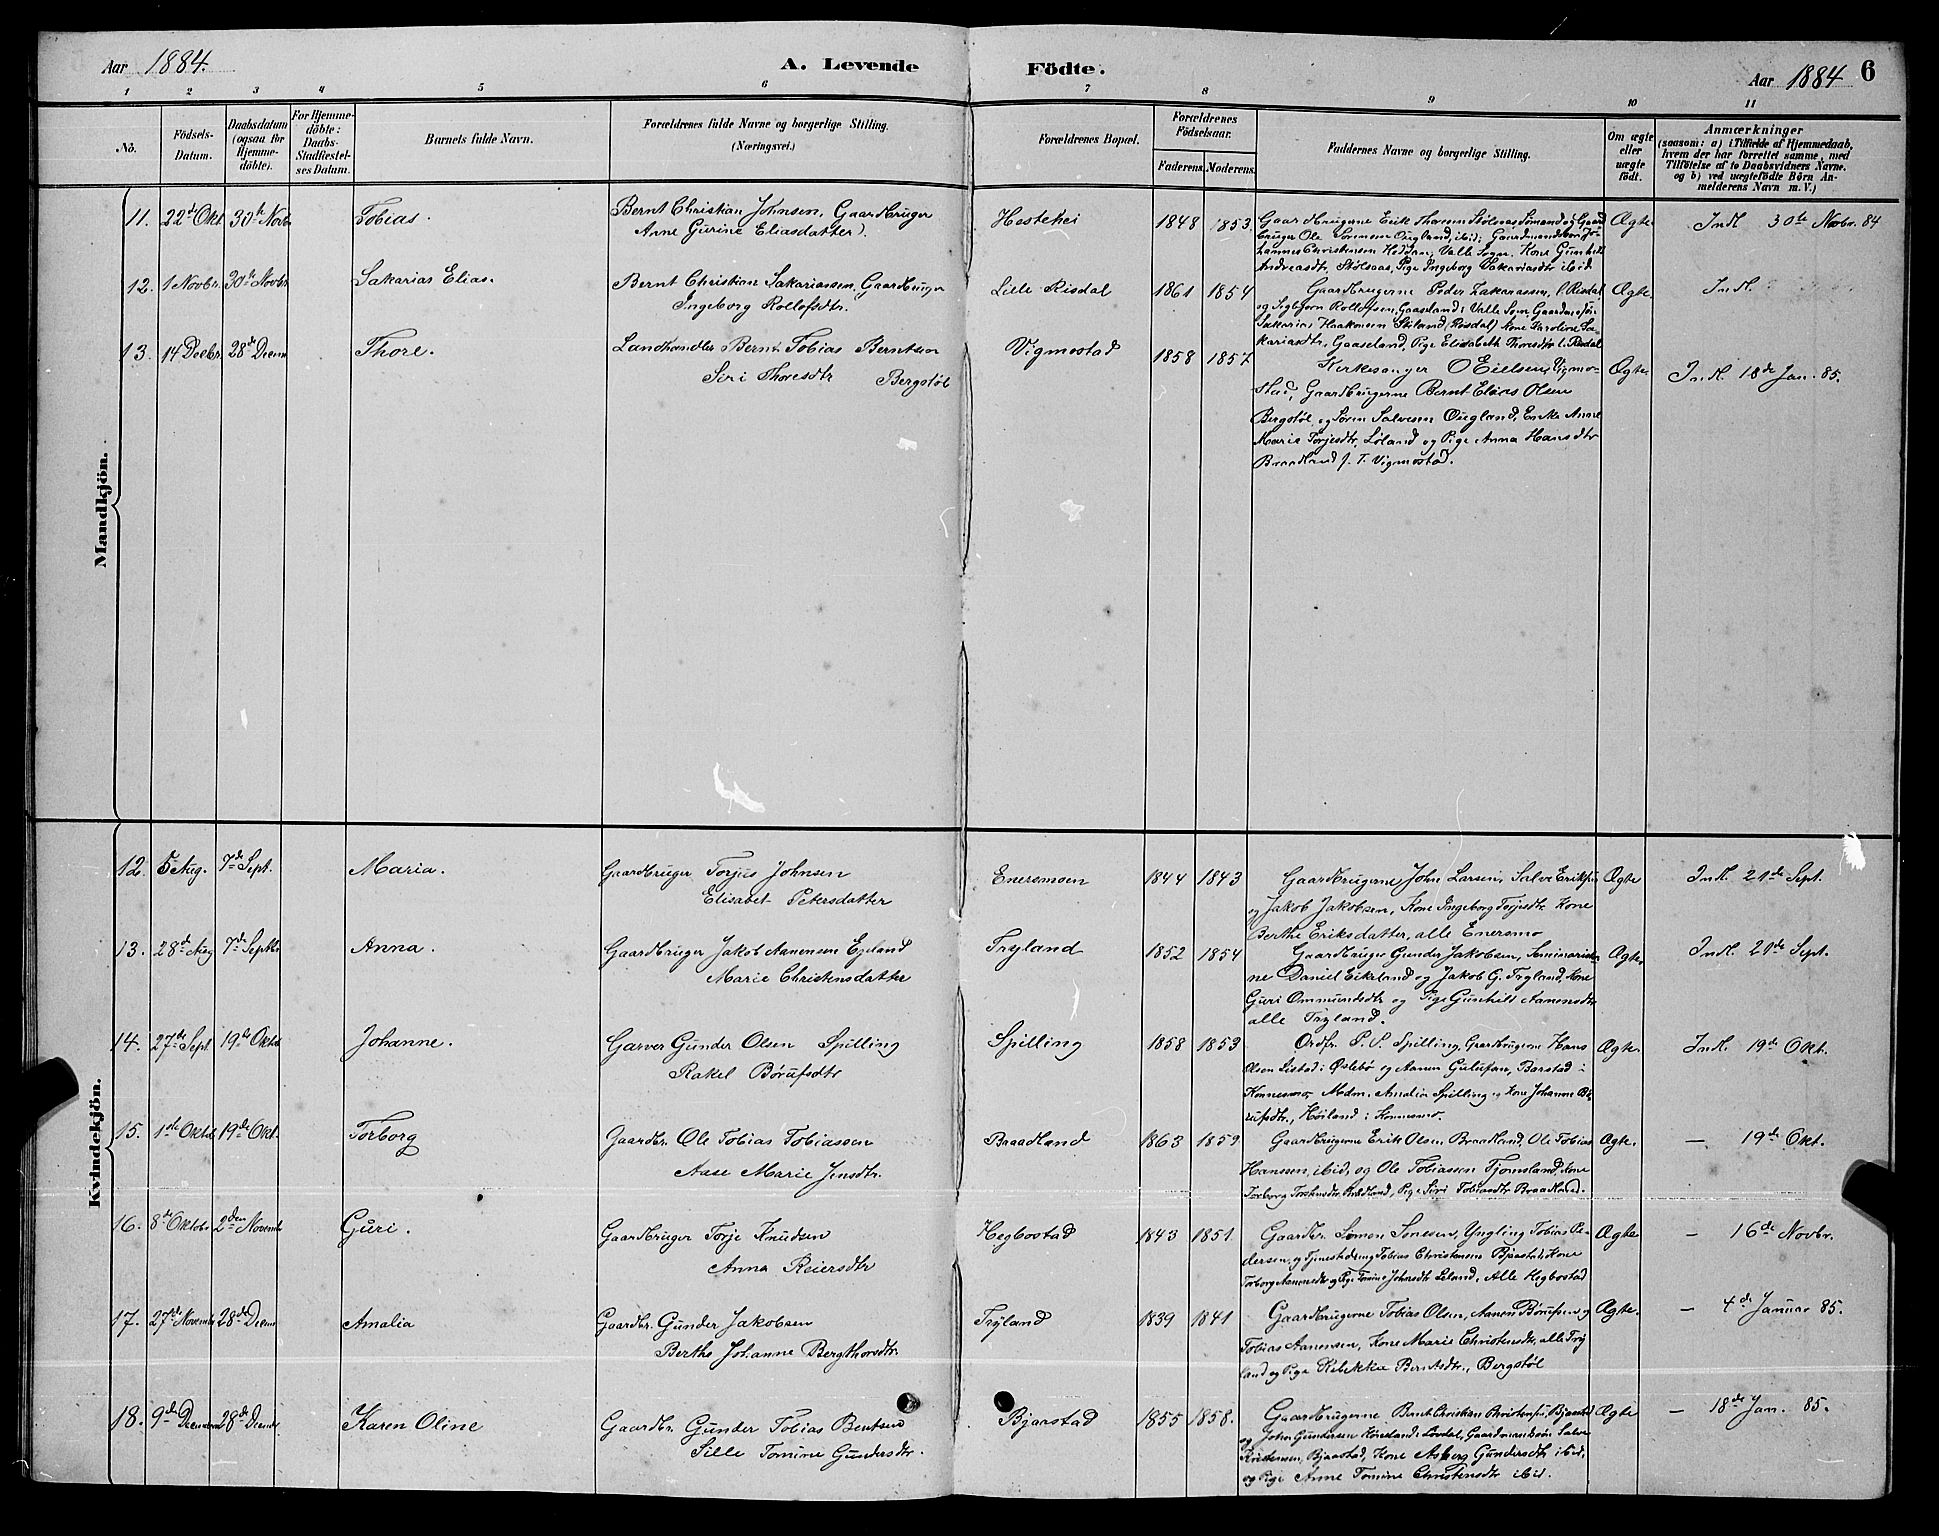 Aar 1884.
A. Levende Födte.
Aar 1884 6
1 2 3 4 5 6 7 8 9 10 11
No.
Födsels-Datum.
Daabsdatum (ogsaa for Hjemme-döbte).
For Hjemme-döbte: Daabs-Stadfæstel-ses Datum.
Barnets fulde Navn.
Forældrenes fulde Navne og borgerlige Stilling. (Næringsvei.)
Forældrenes Bopæl.
Forældrenes Födselsaar.
Faderens. Moderens.
Faddernes Navne og borgerlige Stilling.
Om ægte eller uægte födt.
Anmærkninger
(saasom: a) i Tilfælde af Hjemmedaab, hvem der har forrettet samme, med Tilföielse af to Daabsvidners Navne. og b) ved uægtefödte Börn Anmelderens Navn m. V.)
Mandkjön.
11. 22de Okt 30te Novbr Tobias.
Bernt Christian Johnsen, Gaardbruger
Anne Gurine Eliasdatter.
Hestehei 1848 1853.
Gaardbrugerne Erik Thoresen Stølsaas, Sømand og Gaard
bruger Ole Sørensen Øugland, ibid; Gaardmandssøn Jo-
hannes Christensen Heddan, Valle Sogn, Kone Gunhild
Andreasdtr, Stølsaas, Pige Ingeborg Sakariasdtr ibid
Ægte Indl. 30te Novbr. 84
12. 1 Novbr. 30te Novbr Sakarias Elias.
Bernt Christian Sakariassen, Gaardbruger
Ingeborg Rollofsdtr.
Lille Risdal 1861 1854
Gaardbrugerne Peder Zakariassen, l. Risdal
og Sigbjørn Rolloffsen, Gaaseland i Valle Sogn, Gaardmssøn
Sakarias Haakonsen Stiland, Kone Karoline Sa-
kariasdtr, Gaaseland, Pige Elisabeth Thoresdtr l. Risdal
Ægte. Indl.
13. 14 Decbr. 28de Decem Thore.
Landhandler Bernt Tobias Berntsen
Siri Thoresdtr Bergstøl
Vigmostad 1858 1857
Kirkesanger O Eielsen, Vigmo-
stad, Gaardbrugerne Bernt Elias Olsen
Bergstøl og Søren Salvesen Øugland, Enke Anne
Marie Torjesdtr, Løland og Pige Anna Hansdtr
Braadland f. T. Vigmostad.
Ægte Indl. 18de Jan. 85.
Kvindekjön.
12. 5 Aug. 7de Sept. Maria.
Gaardbruger Torjus Johnsen
Elisabet Petersdatter
Enersmoen 1844 1843
Gaardbrugerne John Larsen, Salve Eriksen
og Jakob Jakobsen, Kone Ingeborg Torjesdtr Kone
Berthe Eriksdatter, alle Enersmo
Ægte Indl. 21de Sept.
13. 28de Aug 7de Septbr Anna.
Gaardbruger Jakob Aanensen Egeland
Marie Christensdatter
Tryland 1852 1854
Gaardbruger Gunder Jakobsen, Seminarister-
ne Daniel Eikeland og Jakob G. Tryland, Kone
Guri Ommundsdtr og Pige Gunhild Aanensdtr
alle Tryland.
Ægte Indl. 21de Sept.
14. 27de Sept 19de Oktbr Johanne.
Garver Gunder Olsen Spilling
Rakel Børufsdtr
Spilling 1858 1853
Ordfr. P. S. Spilling, Gaardbrugerne Hans
Olsen i Øslebø og Aanen Gulufsen, Barstad i
Konnesmo, Mdm. Amalia Spilling og Kone Johanne Bø-
rufsdtr, Høiland i Konnesmo.
Ægte. Indl. 19de Okt.
15. 1ste Oktbr 19de Okt. Torborg
Gaardbr. Ole Tobias Tobiassen
Aase Marie Jensdtr.
Braadland 1863 1859
Gaardbrugerne Erik Olsen, Braadland, Ole Tobias
Hanssen, ibid, og Ole Tobiassen Tjomsland, Kone
Torborg Torstensdtr, Braadland, Pige Siri Tobiasdtr Braadland.
Ægte. – 19de Okt.
16. 8de Oktobr 2den Novemb Guri.
Gaardbruger Torje Knudsen
Anna Reiersdtr
Hegbostad 1843 1851.
Gaardbr. Simon Simesen, Yngling Tobias Pe-
dersen, og Tjenestedreng Tobias Christensen Bjaastad, Kone
Torborg Aanensdtr og Pige Tomine Johnsdtr Leland, Alle Hegbostad
Ægte – 16de Novbr.
17. 27de Novemb 28de Decem Amalia
Gaardbr. Gunder Jakobsen
Berthe Johanne Bergthorsdtr.
Tryland 1839 1841.
Gaardbrugerne Tobias Olsen, Aanen Børufsen og
Tobias Aanensen, Kone Marie Christensdtr, alle Try
land og Pige Rebekka Berntsdtr., Bergstøl
Ægte. – 4de Januar 85.
18. 9de Decemb 28de Decemb Karen Oline
Gaardbr. Gunder Tobias Bentsen
Sille Tomine Gundersdtr.
Bjarstad 1855 1858.
Gaardbrugerne Bernt Christian Christensen, Bjaastad
og John Gundersen Høiesland, Gaardmandssøn Salve
Kristensen, Bjaastad, Kone Asborg Gundersdtr ibid,
og Pige Anne Tomine Christensdtr ibid.
Ægte – 18de Jan. 85.